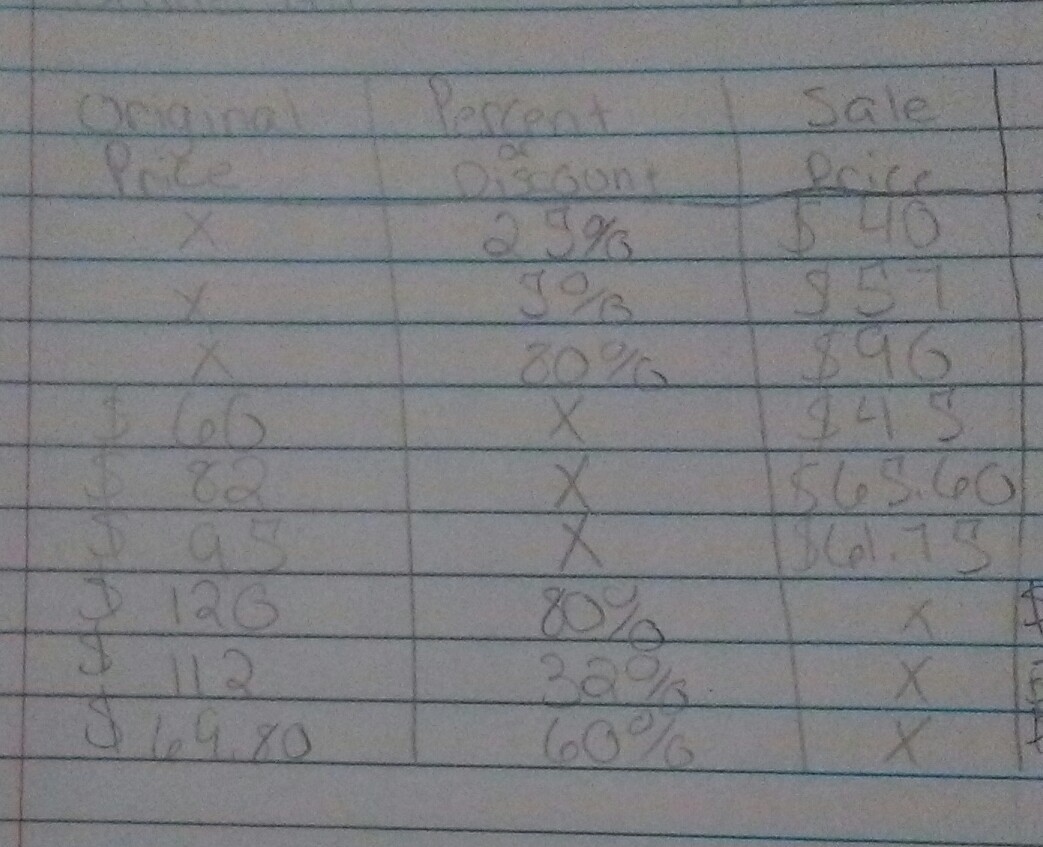 Original Percent Sale
Price of Discount Price
X 25% $ 40
X 5% $ 57
X 80% $ 96
$ 60 X $ 45
$ 82 X $ 65.60
$ 95 X $ 61.75
$ 120 80% X
$ 112 32% X
$ 69.80 60% X